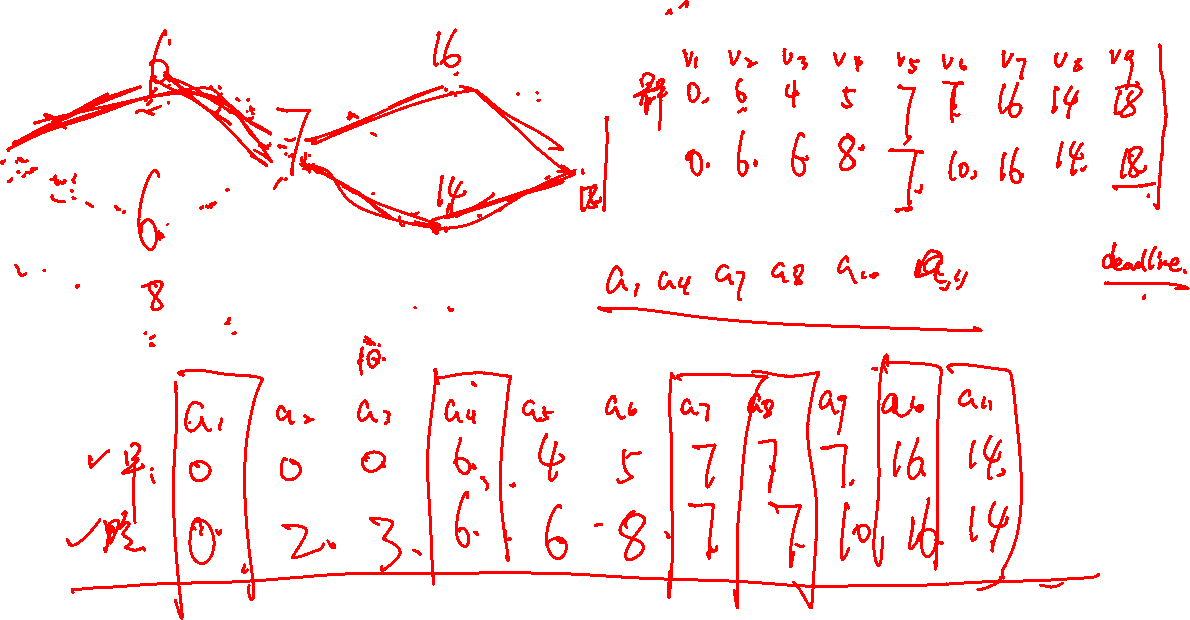 6 16 v1 v2 v3 v4 v5 v6 v7 v8 v9
0. 6 4 5 7 7 16 14 18
7
0. 6. 6 8. 7. 10. 16 14. 18.
6. 14 18
8
a1 a4 a7 a8 a10 a11 deadline.
a1 a2 a3 a4 a5 a6 a7 a8 a9 a10 a11
✓早: 0 0 0 6. 4 5 7 7 7. 16. 14.
✓晚 0 2. 3. 6. 6 8. 7 7. 10. 16. 14